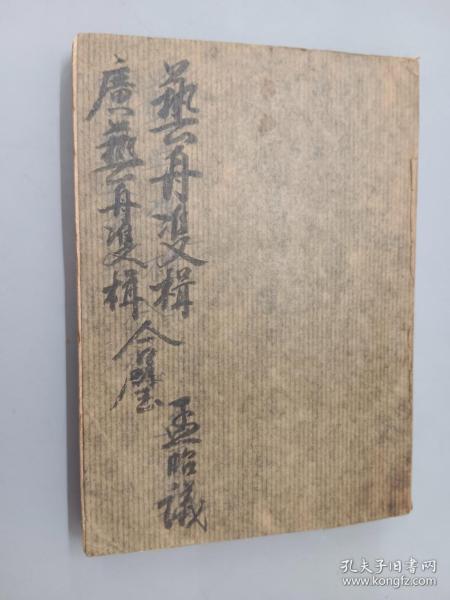 藝舟雙楫
廣藝舟雙楫合璧
孟昭議
孔夫子旧书网
www.kongfz.com